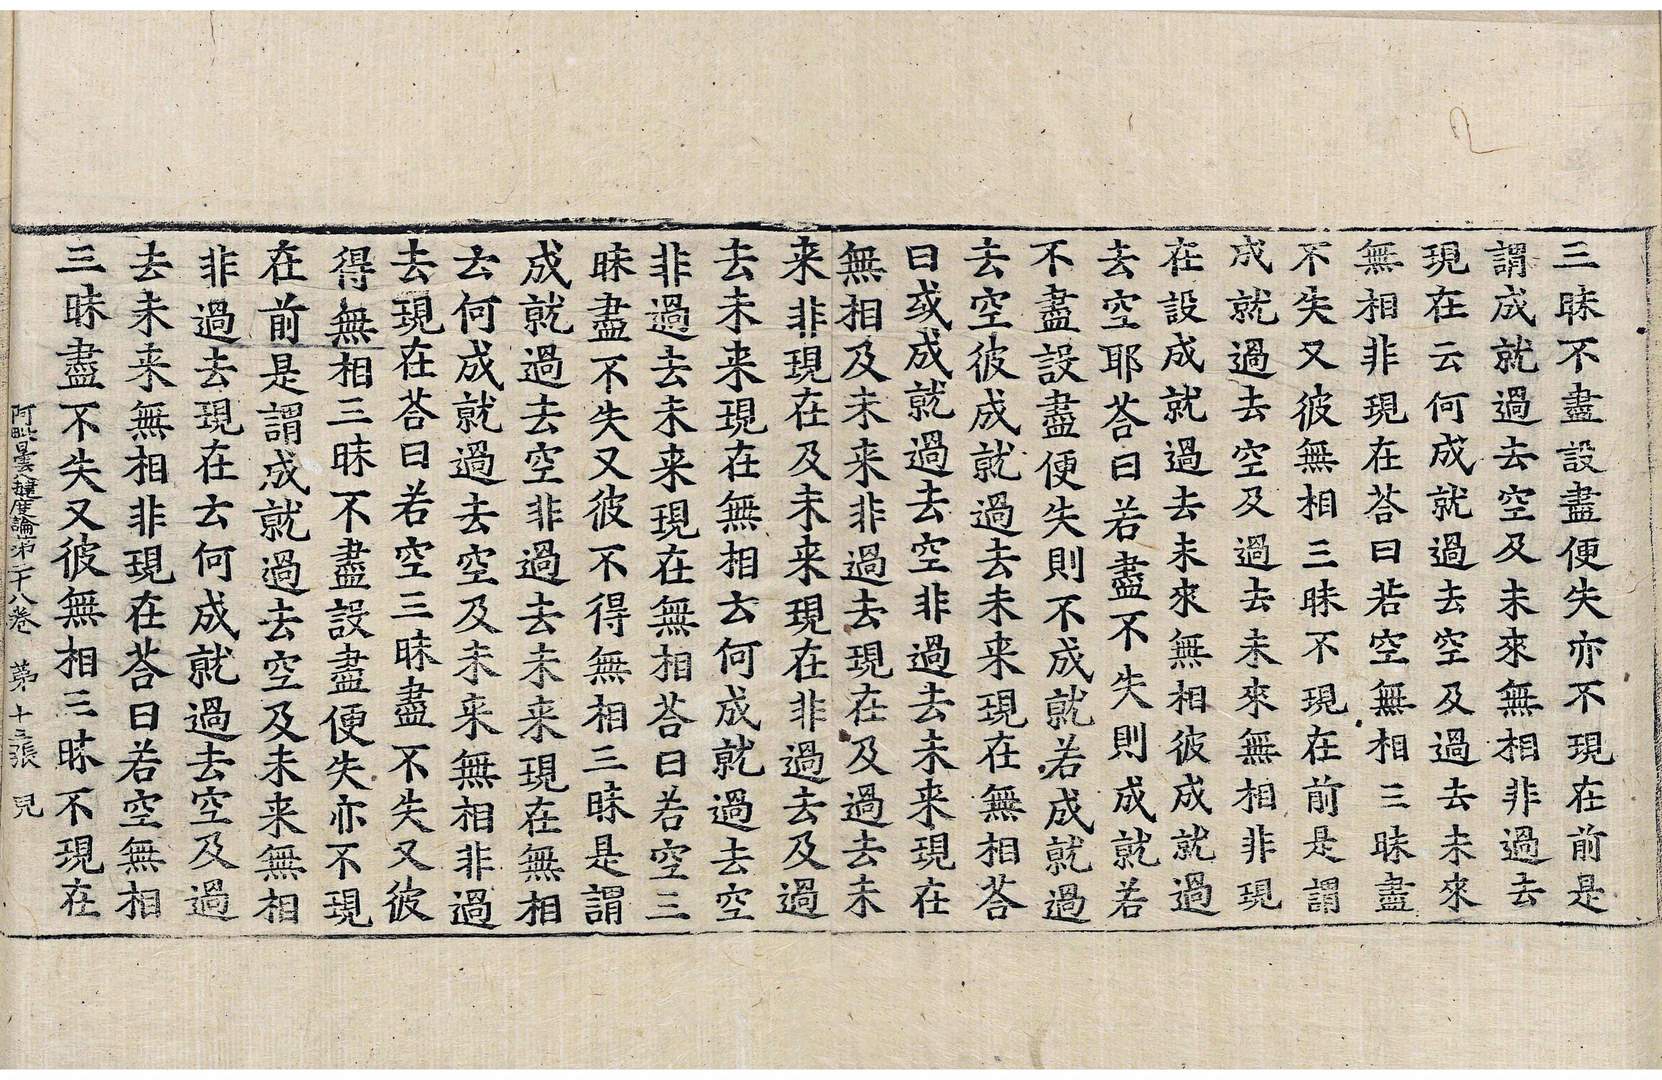 三昧不盡設盡便失亦不現在前是
謂成就過去空及未來無相非過去
現在云何成就過去空及過去未來
無相非現在荅曰若空無相三昧盡
不失又彼無相三昧不現在前是謂
成就過去空及過去未來無相非現
在設成就過去未來無相彼成就過
去空耶荅曰若盡不失則成就若
不盡設盡便失則不成就若成就過
去空彼成就過去未来現在無相荅
曰或成就過去空非過去未来現在
無相及未来非過去現在及過去未
来非現在及未来現在非過去及過
去未来現在無相云何成就過去空
非過去未来現在無相荅曰若空三
昧盡不失又彼不得無相三昧是謂
成就過去空非過去未来現在無相
云何成就過去空及未来無相非過
去現在荅曰若空三昧盡不失又彼
得無相三昧不盡設盡便失亦不現
在前是謂成就過去空及未来無相
非過去現在云何成就過去空及過
去未来無相非現在荅曰若空無相
三昧盡不失又彼無相三昧不現在
阿毗曇揵度論第二十八卷 第十三張 皃